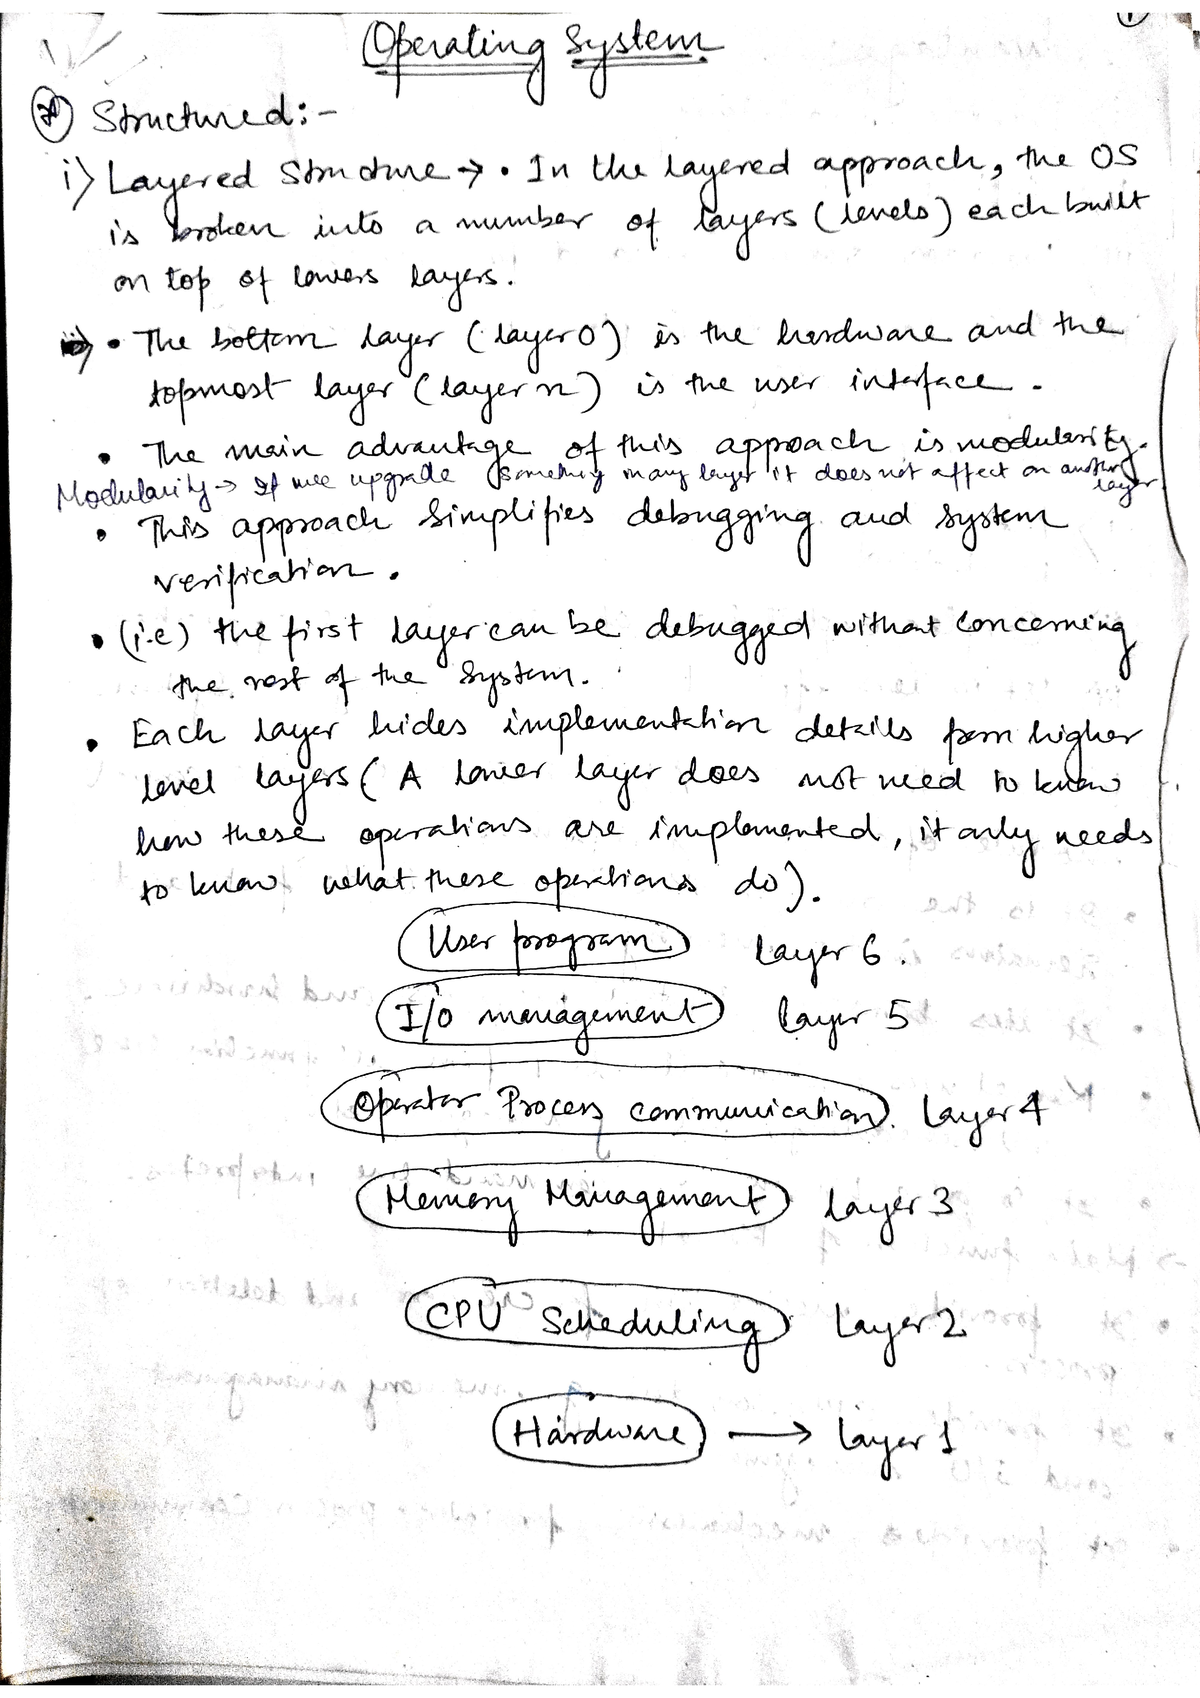 Operating System
Structured:-
i) Layered Structure → • In the layered approach, the OS
is broken into a number of layers (levels) each built
on top of lowers layers.
• The bottom layer (layer 0) is the hardware and the
topmost layer (layer n) is the user interface.
• The main advantage of this approach is modularity.
Modularity → If we upgrade something in any layer it does not affect on another
layer
• This approach simplifies debugging and system
verification.
• (i.e) the first layer can be debugged without concerning
the rest of the system.
• Each layer hides implementation details from higher
level layers ( A lower layer does not need to know
how these operations are implemented, it only needs
to know what these operations do).
User program Layer 6.
I/O management Layer 5
Operator Process communication. Layer 4
Memory Management Layer 3
CPU Scheduling Layer 2
Hardware → Layer 1